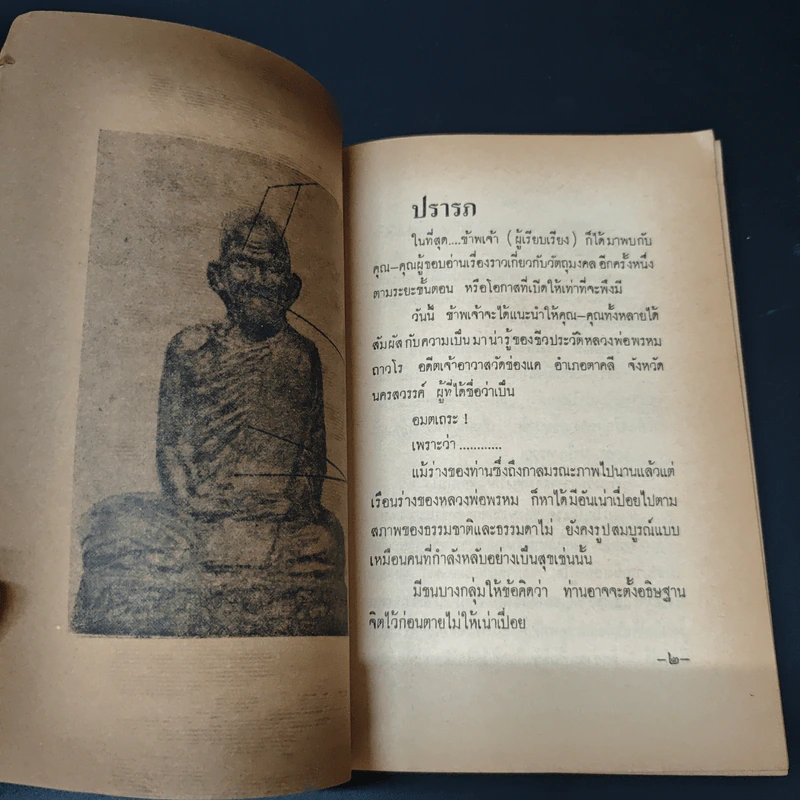 ปรารภ
ในที่สุด....ข้าพเจ้า (ผู้เรียบเรียง) ก็ได้มาพบกับ
คุณ-คุณผู้ชอบอ่านเรื่องราวเกี่ยวกับวัตถุมงคล อีกครั้งหนึ่ง
ตามระยะขั้นตอน หรือโอกาสที่เบิดให้เท่าที่จะพึงมี
วันนี้ ข้าพเจ้าจะได้แนะนำให้คุณ-คุณทั้งหลายได้
สัมผัสกับความเป็นมาน่ารู้ของชีวประวัติหลวงพ่อพรหม
ถาวโร อดีตเจ้าอาวาสวัดช่องแค อำเภอตาคลี จังหวัด
นครสวรรค์ ผู้ที่ได้ชื่อว่าเป็น
อมตเถระ !
เพราะว่า ............
แม้ร่างของท่านซึ่งถึงกาลมรณะภาพไปนานแล้วแต่
เรือนร่างของหลวงพ่อพรหม ก็หาได้มีอันเน่าเปื่อยไปตาม
สภาพของธรรมชาติและธรรมดาไม่ ยังคงรูปสมบูรณ์แบบ
เหมือนคนที่กำลังหลับอย่างเป็นสุขเช่นนั้น
มีชนบางกลุ่มให้ข้อคิดว่า ท่านอาจจะตั้งอธิษฐาน
จิตไว้ก่อนตายไม่ให้เน่าเปื่อย
-๒-